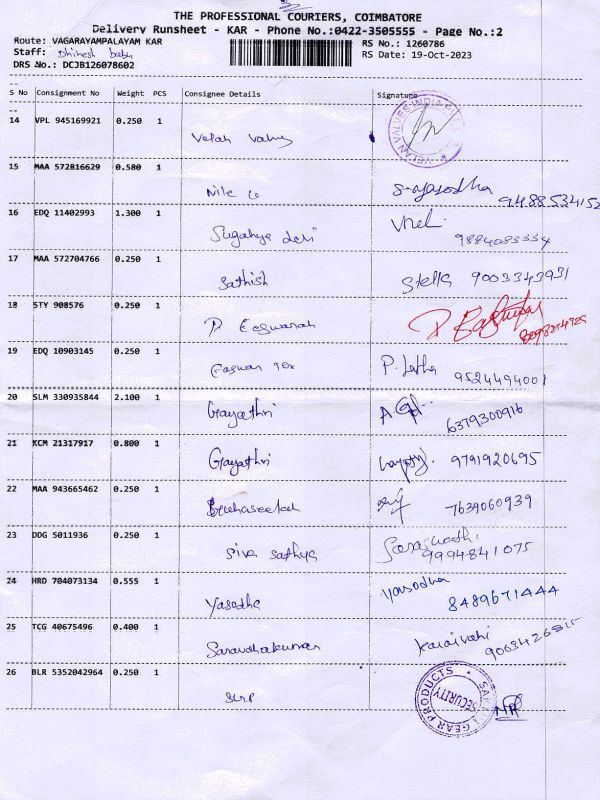 THE PROFESSIONAL COURIERS, COIMBATORE
Delivery Runsheet - KAR - Phone No.:0422-3505555 - Page No.:2
Route: VAGARAYAMPALAYAM KAR RS No.: 1260786
Staff: Dhinesh babu RS Date: 19-Oct-2023
DRS No.: DCJB126078602
S No Consignment No Weight PCS Consignee Details Signature
14 VPL 945169921 0.250 1
Velan Valves
VELAN VALVES INDIA
15 MAA 572816629 0.580 1
Nile
16 EDQ 11402993 1.300 1
Devi
17 MAA 572704766 0.250 1
Sathish Stella 9003343931
18 STY 908576 0.250 1
P. Eeswaran
19 EDQ 10903145 0.250 1
Easwari Tex P. Latha 9524494001
20 SLM 330935844 2.100 1
Gayathri 6379300916
21 KCM 21317917 0.800 1
Gayathri 9791920695
22 MAA 943665462 0.250 1
7639060939
23 DDG 5011936 0.250 1
Siva Sathya Saraswathi
9994841075
24 HRD 704073134 0.555 1
Yasodha Yasodha
8489671444
25 TCG 40675496 0.400 1
Saravanakumar Kalaivani
26 BLR 5352042964 0.250 1
GEAR PRODUCTS
SECURITY